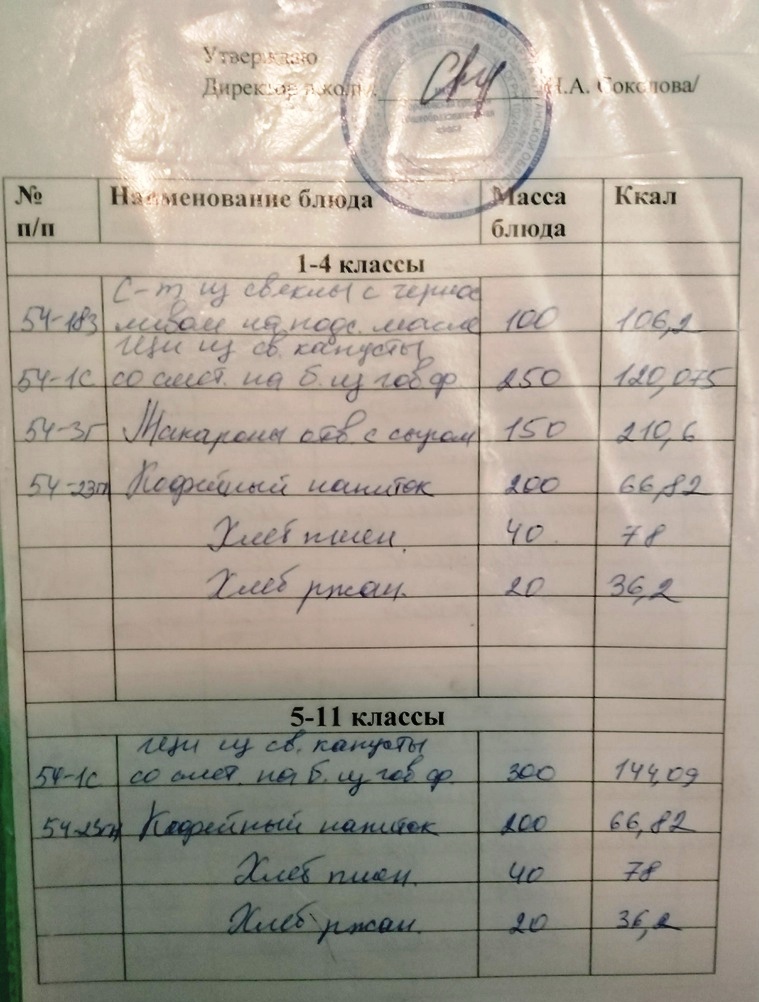 Утверждаю
Директор школы Н.А. Соколова/
№ п/п Наименование блюда Масса блюда Ккал
1-4 классы
С-т из свеклы с чернос
54-18з ливом на подс. масле 100 106,2
Щи из св. капусты
54-1с со смет. на б. из гов ф. 250 120,075
54-3г Макароны отв. с сыром 150 210,6
54-23гн Кофейный напиток 200 66,82
Хлеб пшен. 40 78
Хлеб ржан. 20 36,2
5-11 классы
Щи из св. капусты
54-1с со смет. на б. из гов ф. 300 144,09
54-23гн Кофейный напиток 200 66,82
Хлеб пшен. 40 78
Хлеб ржан. 20 36,2